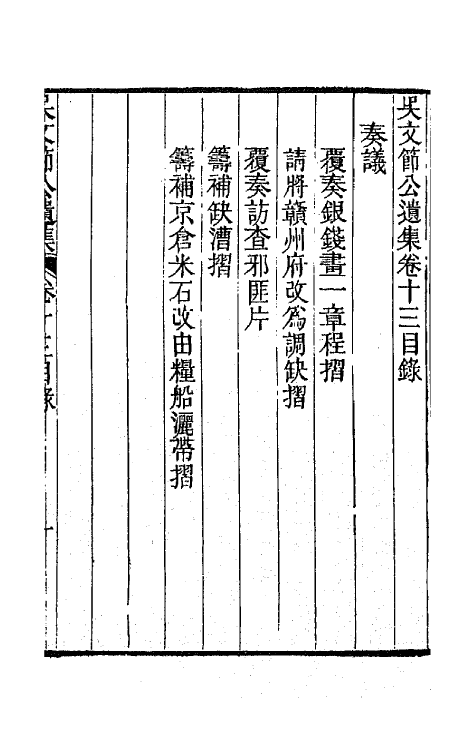 吳文節公遺集卷十三目錄
奏議
覆奏銀錢畫一章程摺
請將贛州府改爲調缺摺
覆奏訪查邪匪片
籌補缺漕摺
籌補京倉米石改由糧船灑帶摺
吳文節公遺集 卷十三目錄 一